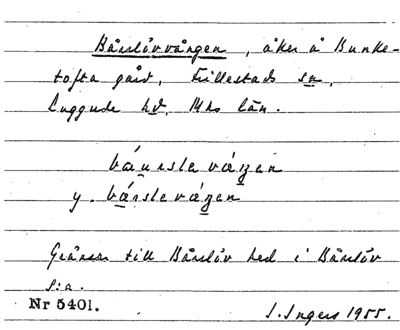 Bårslövvången, åker å Bunke-
tofta gård, Fillestads sn,
Luggude hd, Mhs län.
báu̯rsleváŋen
y. bårslevåŋen
Gränsar till Bårslöv hed i Bårslöv
s:a.
Nr 5401. I. Ingers 1955.